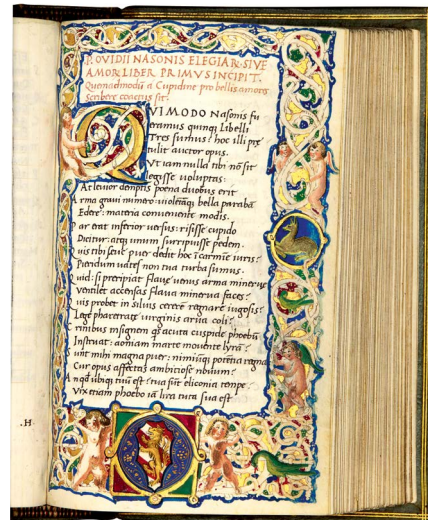 P. OVIDII NASONIS ELEGIAR. SIVE
AMOR. LIBER PRIMVS INCIPIT.
Quemadmodū a Cupidine pro bellis amores
Scribere coactus sit.
QVI MODO Nasonis fu
eramus quinq; libelli
Tres sumus: hoc illi prę
tulit auctor opus.
Vt iam nulla tibi nō sit
legisse uoluptas:
At leuior demptis poena duobus erit
Arma graui numero: uiolētaq; bella parabā
Edere: materia conueniente modis.
Par erat inferior uersus: risisse cupido
Dicitur: atq; unum surripuisse pedem.
Quis tibi seue puer dedit hoc ī carmīe iuris?
Pieridum uates non tua turba sumus.
Quid: si preripiat flauę uenus arma mineruę
Ventilet accensas flaua minerua faces?
Quis probet in siluis cererē regnare iugosis?
Lege pharetratę uirginis arua coli?
Crinibus insignem q̄s acuta cuspide phoebū
Instruat: aoniam marte mouente lyrā?
Sunt mihi magna puer: nimiūq; potētia regna
Cur opus affectas ambitiose nouum?
An qd ubiq; tuū est? tua sūt eliconia tempe?
Vix etiam phoebo iā lira tuta sua est
.H.